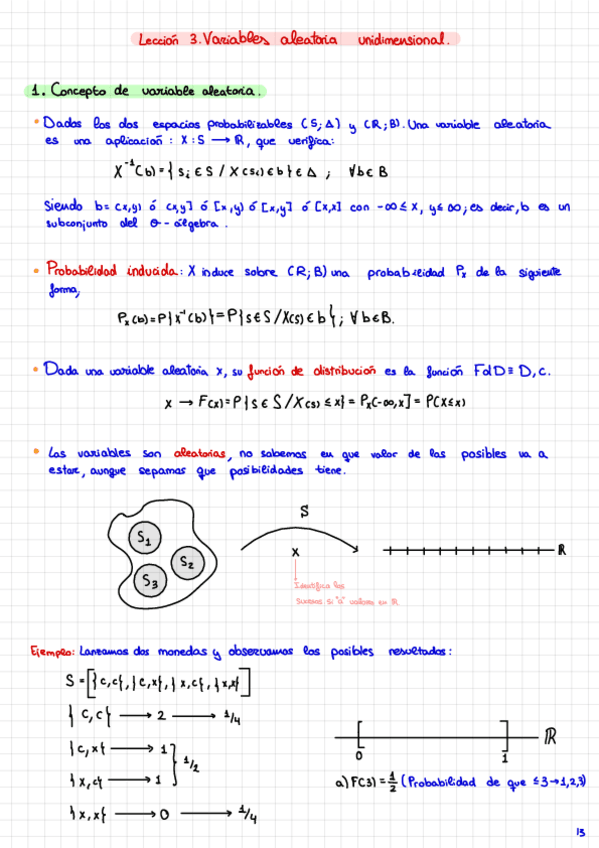 Lección 3. Variables aleatoria unidimensional.
1. Concepto de variable aleatoria.
• Dados los dos espacios probabilizables (S; Δ) y (R; B). Una variable aleatoria
es una aplicación : X : S → R, que verifica:
X⁻¹(b) = { si ∈ S / X(si) ∈ b } ∈ Δ ; ∀b ∈ B
Siendo b = (x,y) ó (x,y] ó [x,y) ó [x,y] ó [x,x] con -∞ ≤ x, y ≤ ∞; es decir, b es un
subconjunto del σ - álgebra.
• Probabilidad inducida: X induce sobre (R; B) una probabilidad Px de la siguiente
forma,
Px(b) = P{x⁻¹(b)} = P{s ∈ S / X(s) ∈ b}; ∀b ∈ B.
• Dada una variable aleatoria x, su función de distribución es la función FdD ≡ D, c.
x → F(x) = P{s ∈ S / X(s) ≤ x} = Px(-∞, x] = P(X ≤ x)
• Las variables son aleatorias, no sabemos en que valor de las posibles va a
estar, aunque sepamos que posibilidades tiene.
S
S1
S2
S3
x
R
Identifica los
sucesos si "a" valores en R
Ejemplo: Lanzamos dos monedas y observamos los posibles resultados:
S = [{c,c},{c,x},{x,c},{x,x}]
{c,c} → 2 → 1/4
{c,x} → 1
1/2
{x,c} → 1
{x,x} → 0 → 1/4
R
0 1
a) F(3) = 1/2 (Probabilidad de que ≤ 3 → 1,2,3)
13